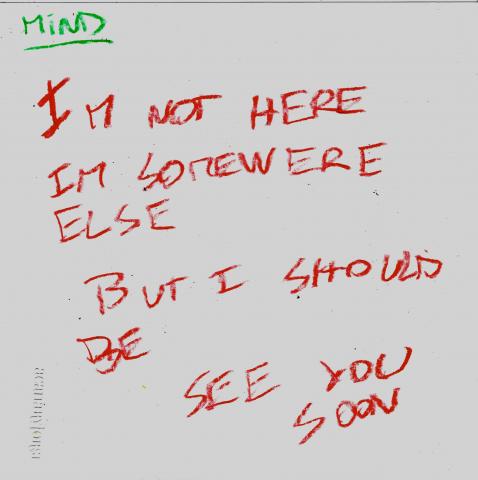 MiND
I'M NOT HERE
IM SOMEWERE
ELSE
BUT I SHOULD
BE
SEE YOU
SOON